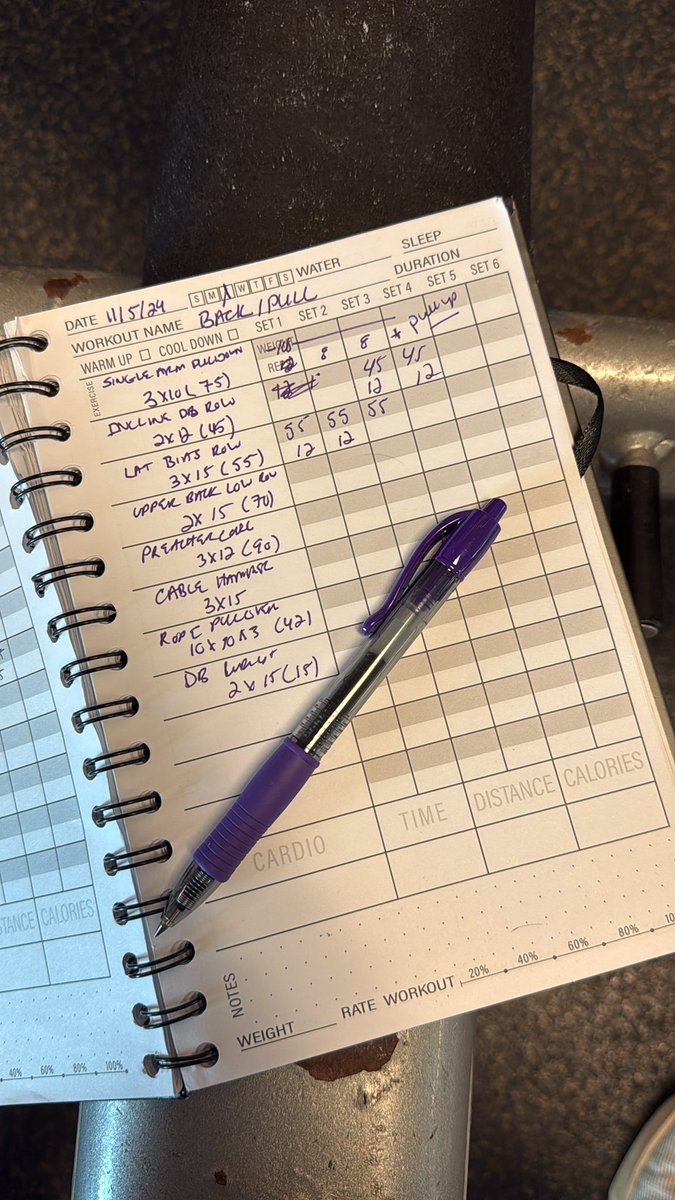 SLEEP
DATE 11/5/24 S M T W T F S WATER
DURATION
WORKOUT NAME BACK/PULL
WARM UP COOL DOWN SET 1 SET 2 SET 3 SET 4 SET 5 SET 6
EXERCISE
SINGLE ARM PULLDOWN 8 8 + pullup
3x10 (75) 12 45 45
INCLINE DB ROW 12 12
2x12 (45) 55 55 55
LAT BIAS ROW 12 12
3x15 (55)
UPPER BACK LOW ROW
2x15 (70)
PREACHER CURL
3x12 (90)
CABLE HAMMER
3x15
ROPE PULLOVER
10x10x3 (42)
DB
2x15 (15)
CARDIO TIME DISTANCE CALORIES
NOTES
20% 40% 60% 80%
WEIGHT RATE WORKOUT
CALORIES
40% 60% 80% 100%